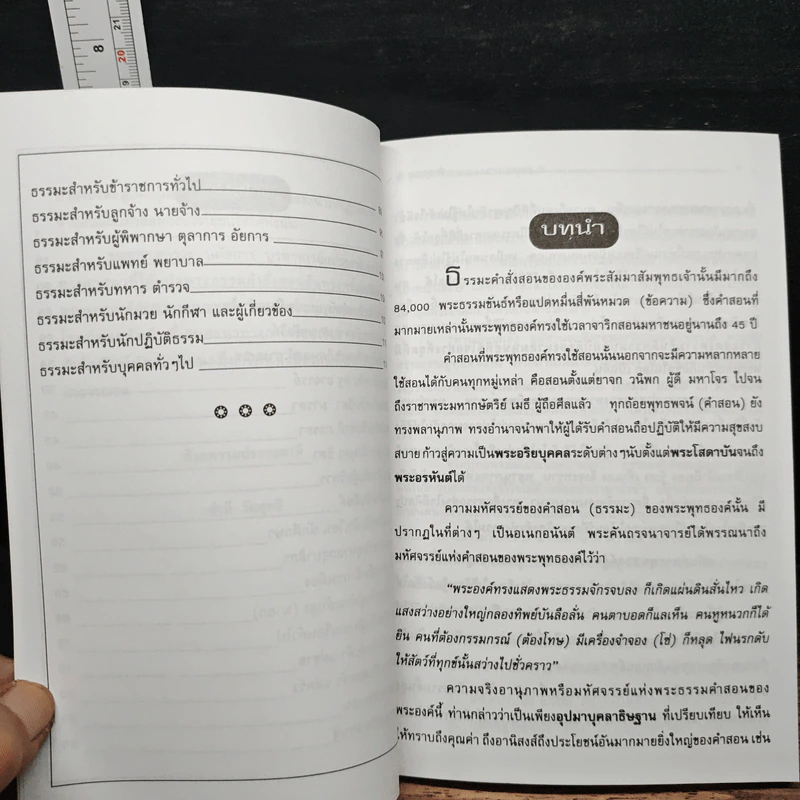 8
21
20
9
ธรรมะสำหรับข้าราชการทั่วไป
ธรรมะสำหรับลูกจ้าง นายจ้าง
ธรรมะสำหรับผู้พิพากษา ตุลาการ อัยการ
ธรรมะสำหรับแพทย์ พยาบาล
ธรรมะสำหรับทหาร ตำรวจ
ธรรมะสำหรับนักมวย นักกีฬา และผู้เกี่ยวข้อง
ธรรมะสำหรับนักปฏิบัติธรรม
ธรรมะสำหรับบุคคลทั่วๆไป
บทนำ
ธรรมะคำสั่งสอนขององค์พระสัมมาสัมพุทธเจ้านั้นมีมากถึง
84,000 พระธรรมขันธ์หรือแปดหมื่นสี่พันหมวด (ข้อความ) ซึ่งคำสอนที่
มากมายเหล่านั้นพระพุทธองค์ทรงใช้เวลาจาริกสอนมหาชนอยู่นานถึง 45 ปี
คำสอนที่พระพุทธองค์ทรงใช้สอนนั้นนอกจากจะมีความหลากหลาย
ใช้สอนได้กับคนทุกหมู่เหล่า คือสอนตั้งแต่ยาจก วนิพก ผู้ดี มหาโจร ไปจน
ถึงราชาพระมหากษัตริย์ เมธี ผู้ถือศีลแล้ว ทุกถ้อยพุทธพจน์ (คำสอน) ยัง
ทรงพลานุภาพ ทรงอำนาจนำพาให้ผู้ได้รับคำสอนถือปฏิบัติให้มีความสุขสงบ
สบาย ก้าวสู่ความเป็นพระอริยบุคคลระดับต่างๆนับตั้งแต่พระโสดาบันจนถึง
พระอรหันต์ได้
ความมหัศจรรย์ของคำสอน (ธรรมะ) ของพระพุทธองค์นั้น มี
ปรากฏในที่ต่างๆ เป็นอเนกอนันต์ พระคันถรจนาจารย์ได้พรรณนาถึง
มหัศจรรย์แห่งคำสอนของพระพุทธองค์ไว้ว่า
“พระองค์ทรงแสดงพระธรรมจักรจบลง ก็เกิดแผ่นดินสั่นไหว เกิด
แสงสว่างอย่างใหญ่กลองทิพย์บันลือลั่น คนตาบอดก็แลเห็น คนหูหนวกก็ได้
ยิน คนที่ต้องกรรมกรณ์ (ต้องโทษ) มีเครื่องจำจอง (โซ่) ก็หลุด ไฟนรกดับ
ให้สัตว์ที่ทุกข์นั้นสว่างไปชั่วคราว”
ความจริงอานุภาพหรือมหัศจรรย์แห่งพระธรรมคำสอนของ
พระองค์นี้ ท่านกล่าวว่าเป็นเพียงอุปมาบุคลาธิษฐาน ที่เปรียบเทียบ ให้เห็น
ให้ทราบถึงคุณค่า ถึงอานิสงส์ถึงประโยชน์อันมากมายยิ่งใหญ่ของคำสอน เช่น